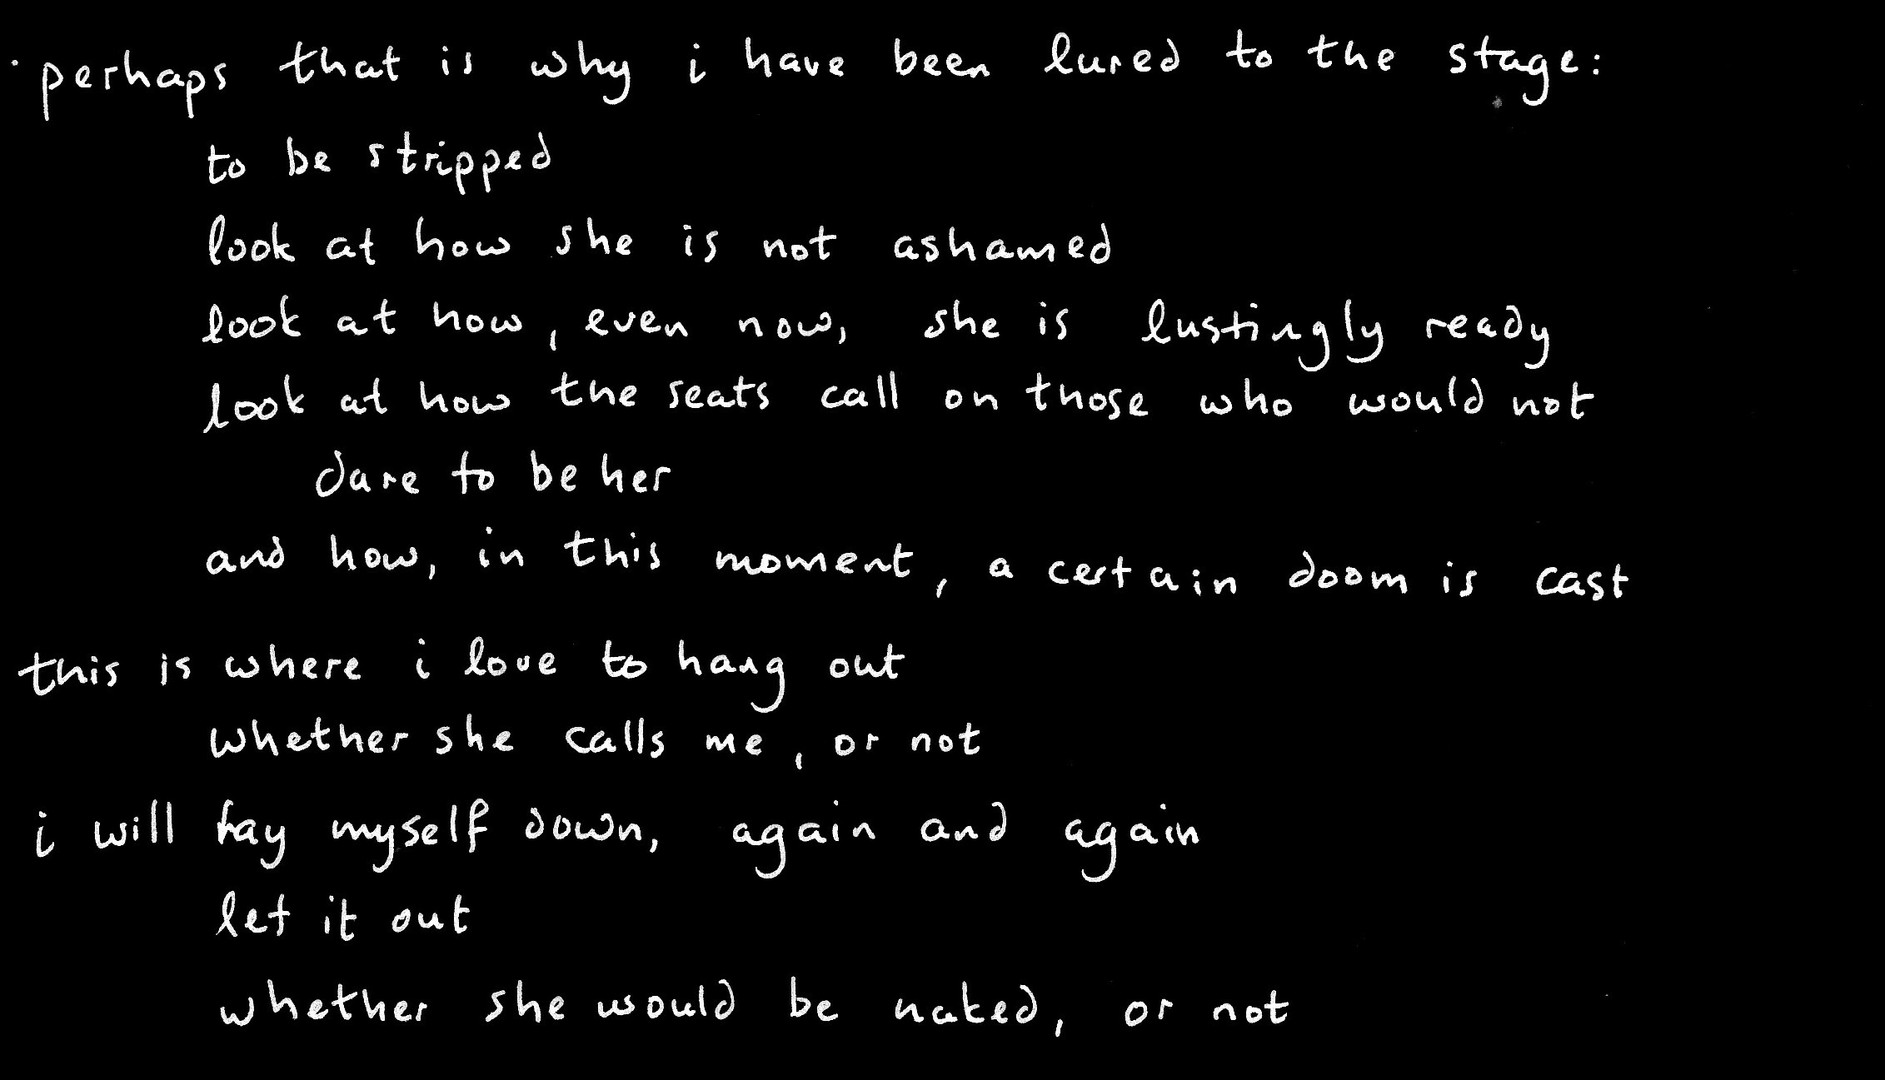 perhaps that is why i have been lured to the stage:
to be stripped
look at how she is not ashamed
look at how, even now, she is lustingly ready
look at how the seats call on those who would not
dare to be her
and how, in this moment, a certain doom is cast
this is where i love to hang out
whether she calls me, or not
i will lay myself down, again and again
let it out
whether she would be naked, or not